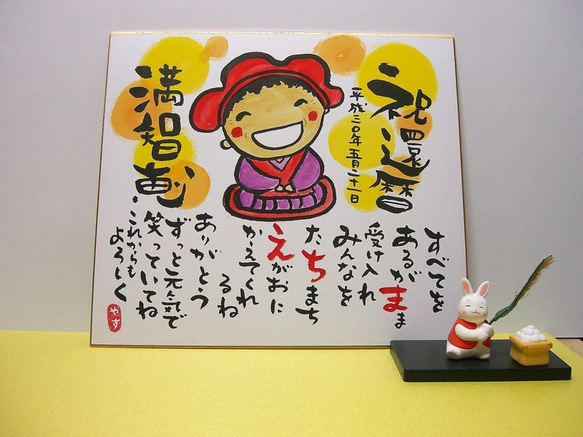 祝還暦
平成三〇年五月二十一日
満智恵
すべてを
あるがまま
受け入れ
みんなを
たちまち
えがおに
かえてくれ
るね
ありがとう
ずっと元気で
笑っていてね
これからも
よろしく
やす